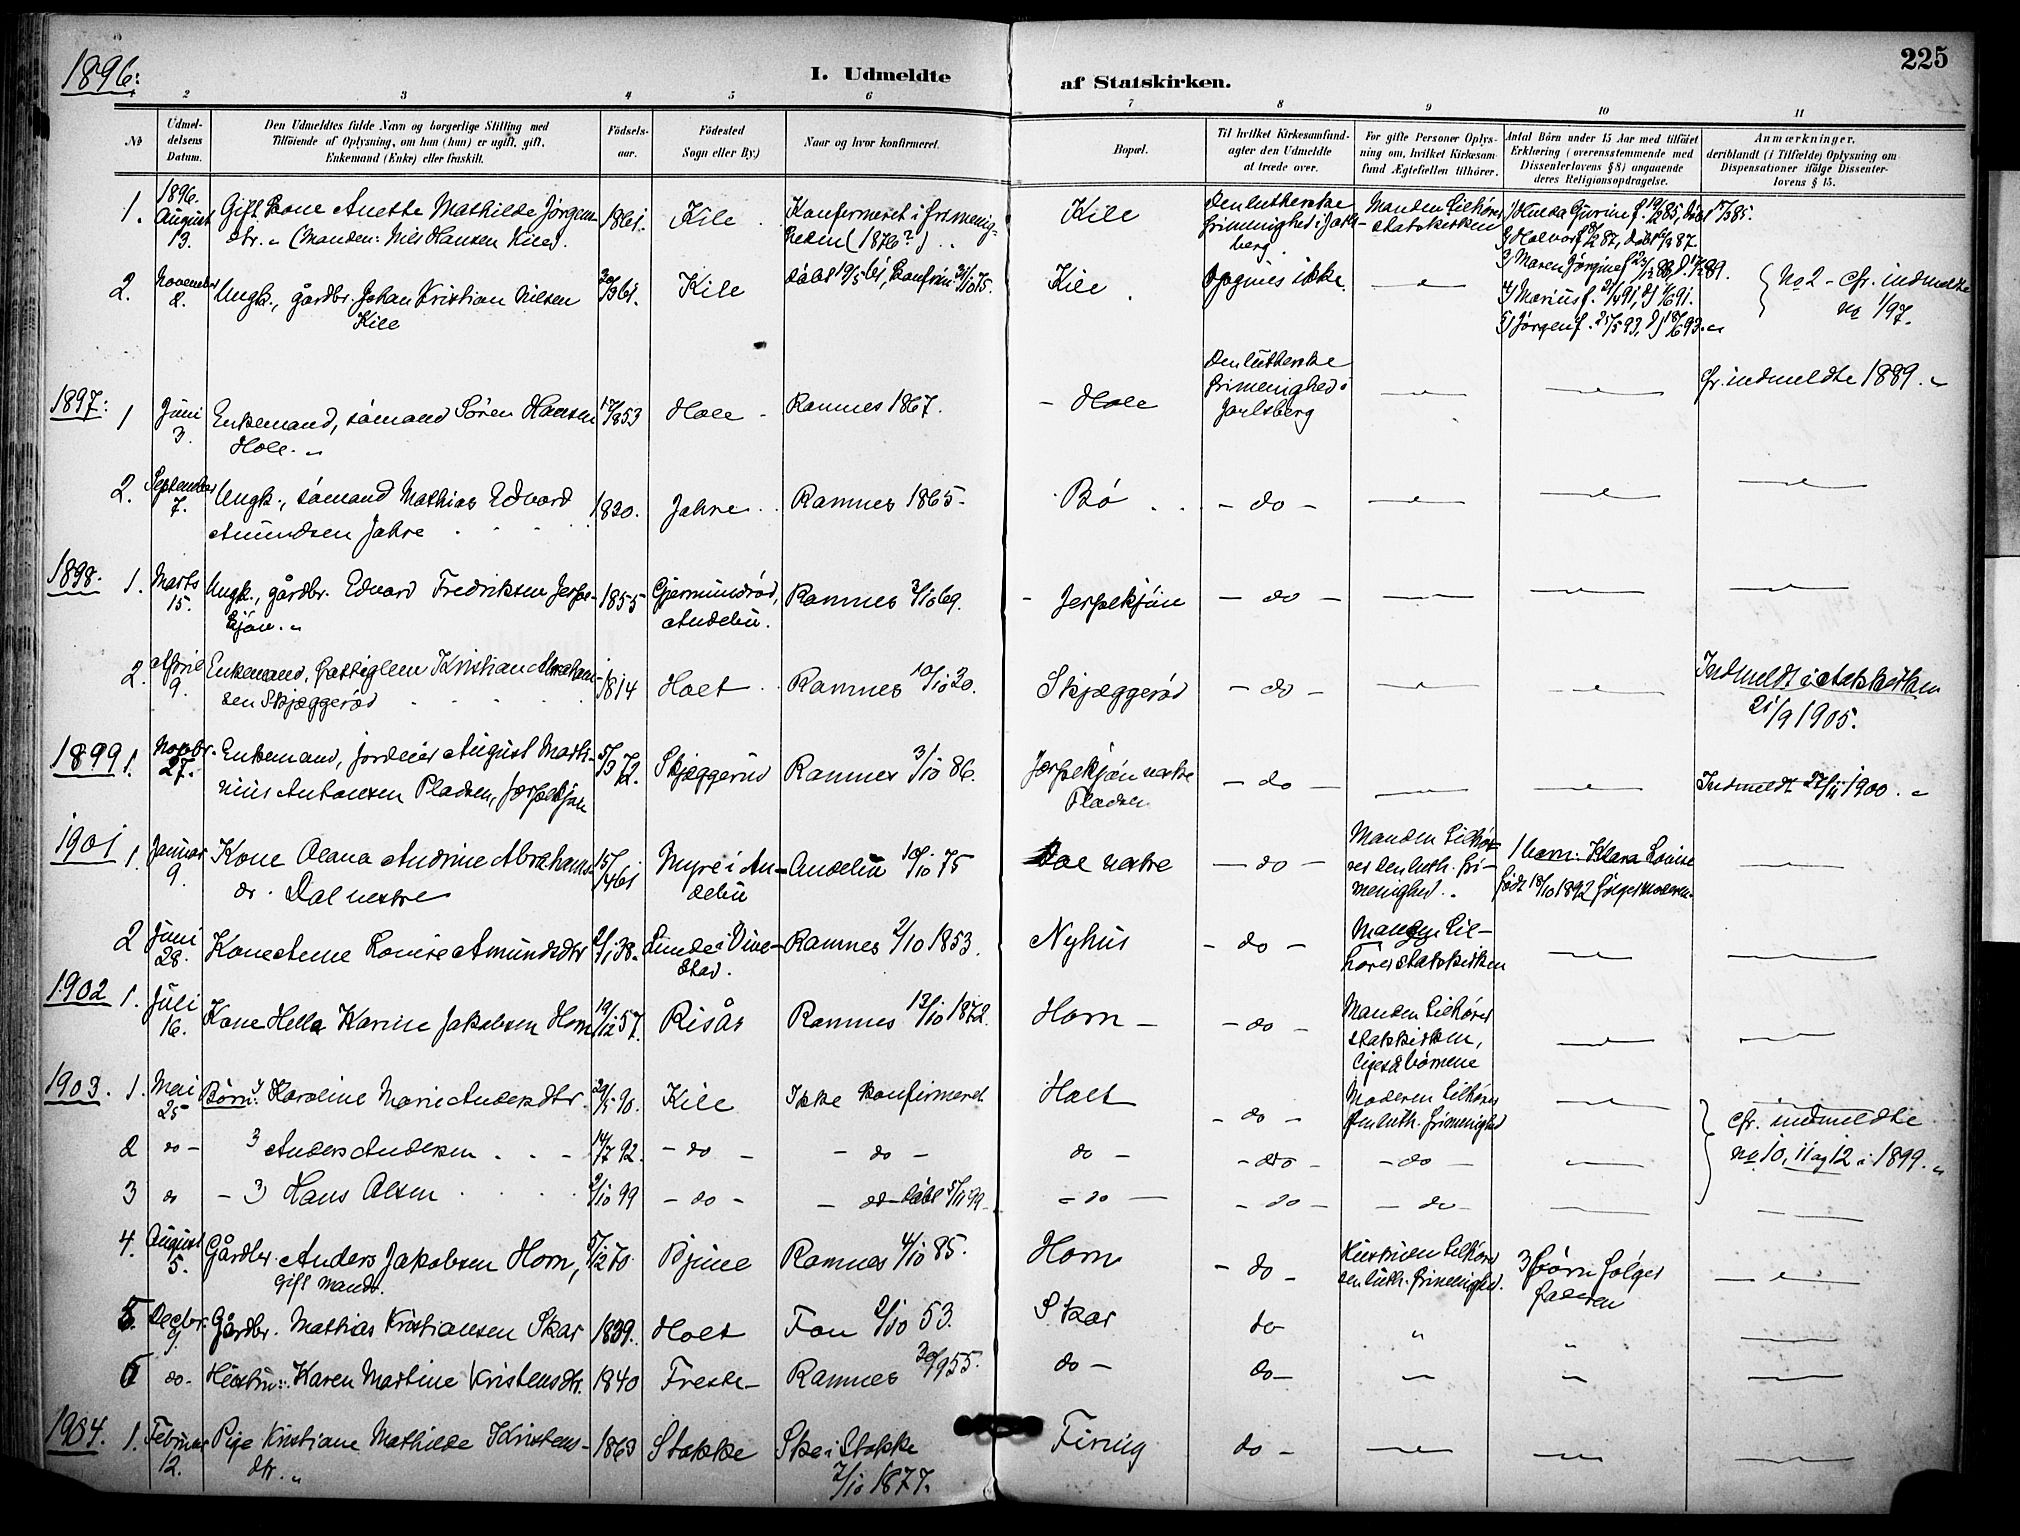 225
1896:
I. Udmeldte af Statskirken.
1 2 3 4 5 6 7 8 9 10 11
No
Udmel-
delsens
Datum.
Den Udmeldtes fulde Navn og borgerlige Stilling med
Tilföiende af Oplysning, om han (hun) er ugift, gift,
Enkemand (Enke) eller fraskilt.
Födsels-
aar.
Födested
Sogn eller By.)
Naar og hvor konfirmeret.
Bopæl.
Til hvilket Kirkesamfund-
agter den Udmeldte
at træde over.
For gifte Personer Oplys-
ning om, hvilket Kirkesam-
fund Ægtefællen tilhörer.
Antal Börn under 15 Aar med tilföiet
Erklæring (overensstemmende med
Dissenterlovens § 8) angaaende
deres Religionsopdragelse.
Anmærkninger,
deriblandt (i Tilfælde) Oplysning om
Dispensationer ifölge Dissenter-
lovens § 15.
1. 1896. August 13. Gift Kone Anette Mathilde Jørgens-
dtr. „ (Manden: Nils Hansen Kile). 1861. Kile Konfirmeret i frimenig-
heden (1876?) Kile Den lutherske
frimenighed i Jarls-
berg Manden tilhører
statskirken
2) Halvor
3) Maren Jørgine
4) Marius f. 2/4 91, d) 1/6 91.
5) Jørgen f. 25/5 93, d) 18/6 93. „
2. November 2. Ungk., gårdbr. Johan Kristian Nilsen
Kile 61. Kile døbt 19/5 61, konfirm. 31/10 75. Kile Opgives ikke. — „ — No 2 – cfr. indmeldte
no 1/97.
1897: 1 Juni 3. Enkemand, sømand Søren Hansen
Hole. „ 1853 Hole Ramnes 1867. – Hole Den lutherske
frimenighed i
Jarlsberg — „ — — „ — cfr. indmeldte 1889. „
2. September 7. Ungk., sømand Mathias Edvard
Amundsen Jahre 1820. Jahre Ramnes 1865. Bø – do – — „ — — „ — — „ —
1898. 1. Marts 15. Ungk., gårdbr. Edvard Fredriksen Jerpe-
kjøn. „ 1855 Gjermundrød,
Andebu. Ramnes 3/10 69. – Jerpekjøn – do – — „ — — „ — — „ —
2. April 9. Enkemand, fattiglem Kristian Abraham-
sen Skjæggerød 1814 Holt Ramnes 10/10 30. Skjæggerød – do – — „ — — „ — Indmeldt i statskirken
21/9 1905.
1899 1. Novbr. 27. Enkemand, jordeier August Marti-
nius Antonsen Pladsen, Jerpekjøn 5/3 72. Skjæggerud Ramnes 3/10 86. Jerpekjøn vestre
Pladsen – do – — „ — — „ — Indmeldt 27/11 1900. „
1901 1. Januar 9. Kone Olava Andrine Abrahams-
dr. Dal vestre 15/14 61 Myre i An-
debu Andebu 10/10 75 Dal vestre – do – Manden tilhø-
rer den luth. fri-
menighed. 1 barn: Klara Lovise
født 18/10 1892 følger moderen. — „ —
2 Juni 28. Kone Anne Lovise Amundsdtr 2/1 38. Linde i Vive-
stad. Ramnes 2/10 1853. Nyhus – do – Manden til-
hører statskirken — „ — — „ —
1902 1. Juli 16. Kone Hella Karine Jakobsen Horn 19/12 57. Risås Ramnes 13/10 1872. Horn – – do – Manden tilhører
statskirken,
ligeså børnene — „ — — „ —
1903. 1. Mai 25 Børn: 1) Karoline Marie Andersdtr. 29/5 90. Kile Ikke konfirmeret Holt – do – Moderen tilhører
den luth. frimenighed — „ — cfr. indmeldte
no 10, 11 og 12 i 1899. „
2 do – 2) Anders Andersen 14/7 92. – do – – do – do – – do – – do – — „ —
3 do – 3) Hans Olsen 2/10 99 – do – – do – døbt 5/11 99. – do – – do – – do – — „ — — „ —
4. August 5. Gårdbr. Anders Jakobsen Horn,
gift mand. 5/12 70. Bjune Ramnes 4/10 85. Horn – do – Hustruen tilhører
den luth. frimenighed. 3 børn følger
faderen — „ —
5. Decbr. 9. Gårdbr. Mathias Kristiansen Skar 1839. Holt Fon 2/10 53. Skar do „ „ —
6 do. Hustru: Karen Martine Kristensdtr. 1840 Freste – Ramnes 30/9 55. do – do – „ „ —
1904. 1. Februar 12. Pige Kristiane Mathilde Kristens-
dtr. „ 1863 Stokke Ske i Stokke
7/10 1877. Firing do – — „ — — „ — — „ —